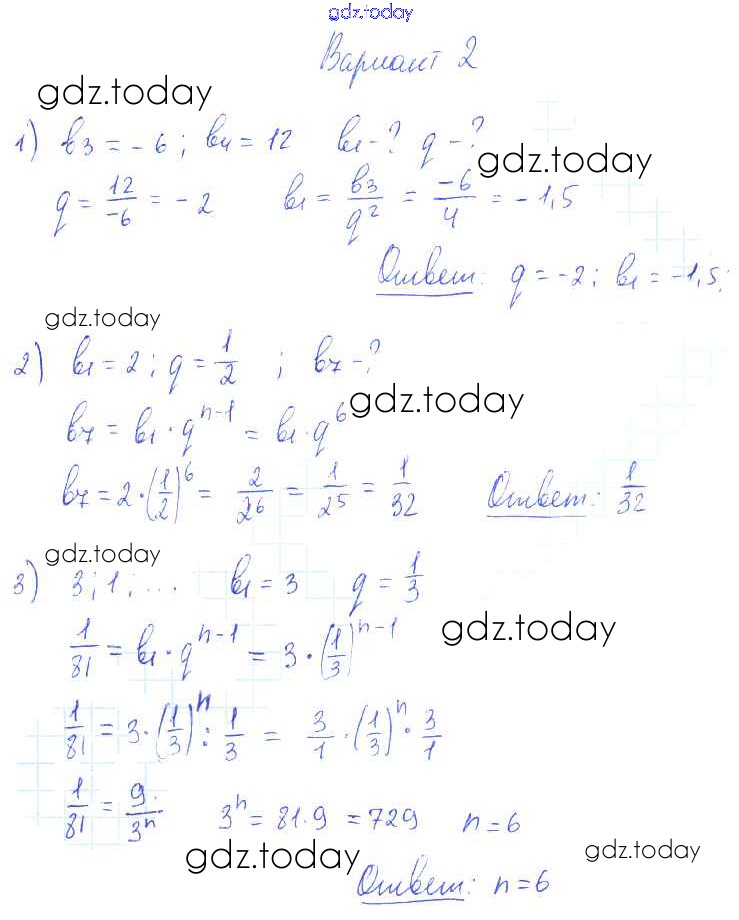 gdz.today
Вариант 2
gdz.today
1) b₃ = -6 ; b₄ = 12 b₁ - ? q - ?
gdz.today
q = 12/-6 = -2 b₁ = b₃/q² = -6/4 = -1,5
Ответ: q = -2 ; b₁ = -1,5;
gdz.today
2) b₁ = 2 ; q = 1/2 ; b₇ - ?
gdz.today
b₇ = b₁ · qⁿ⁻¹ = b₁ · q⁶
b₇ = 2 · (1/2)⁶ = 2/2⁶ = 1/2⁵ = 1/32 Ответ: 1/32
gdz.today
3) 3 ; 1 ; ... b₁ = 3 q = 1/3
gdz.today
1/81 = b₁ · qⁿ⁻¹ = 3 · (1/3)ⁿ⁻¹
1/81 = 3 · (1/3)ⁿ : 1/3 = 3/1 · (1/3)ⁿ · 3/1
1/81 = 9/3ⁿ 3ⁿ = 81 · 9 = 729 n = 6
gdz.today
gdz.today
Ответ: n = 6